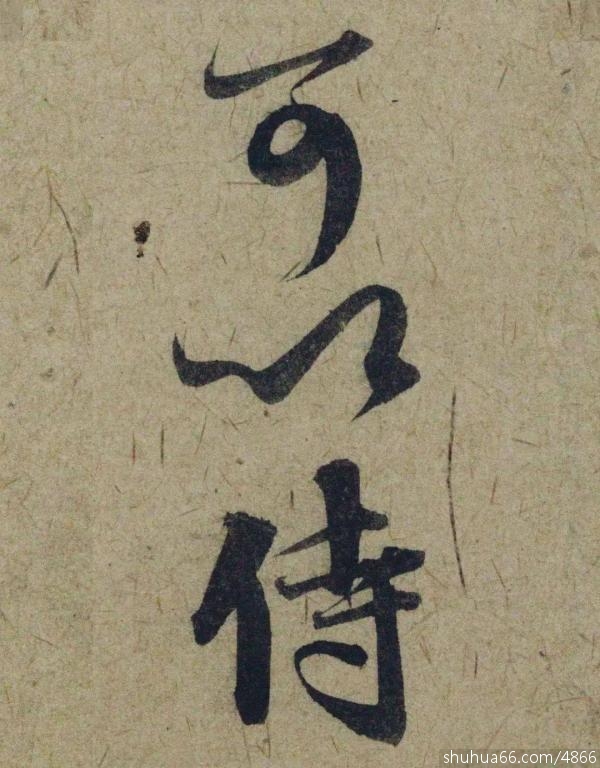 可以侍
shuhua66.com/4866